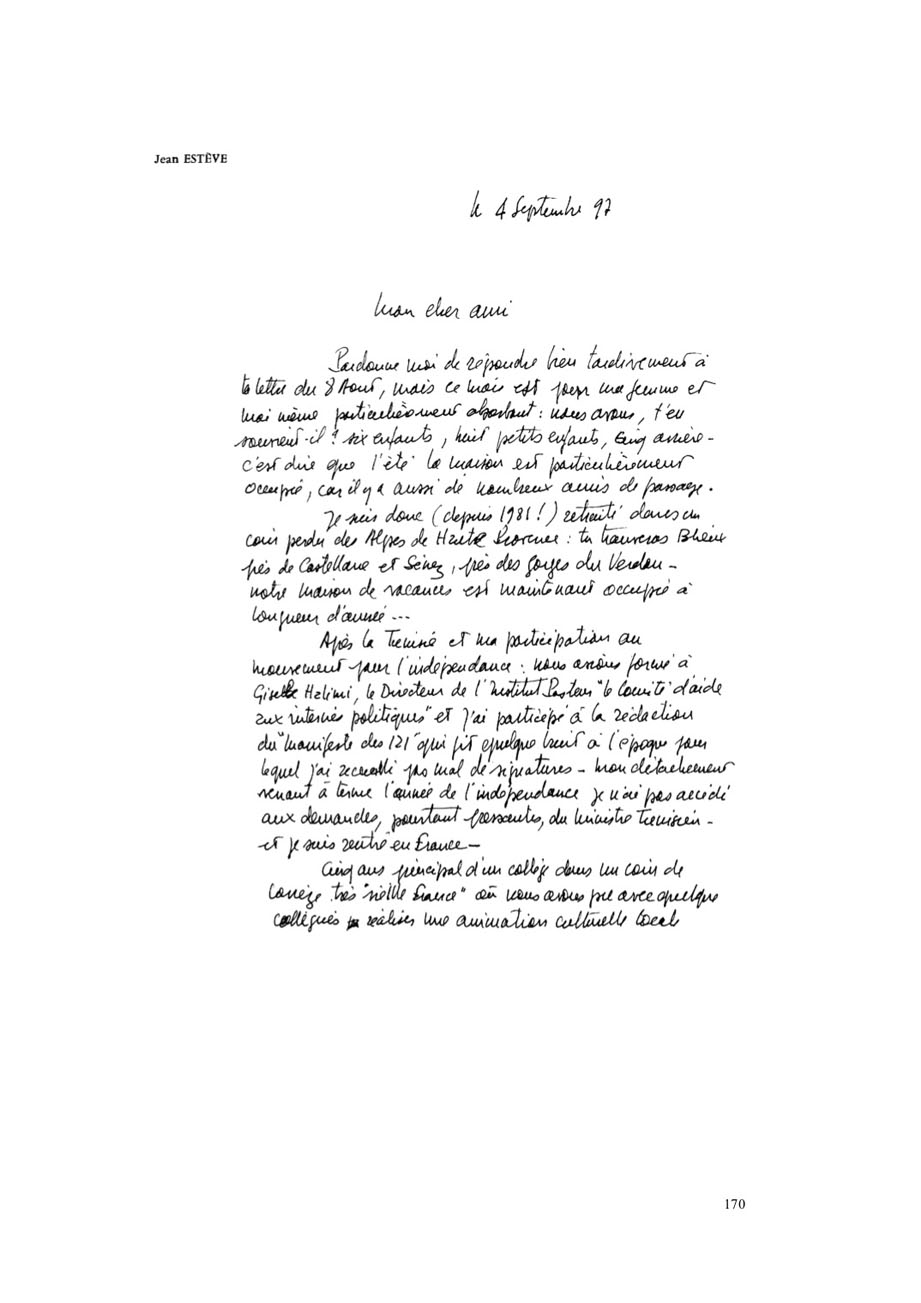 Jean ESTÈVE
le 4 Septembre 97
Mon cher ami
Pardonne moi de répondre bien tardivement à
ta lettre du 8 Aout, mais ce mois est pour ma femme et
moi même particulièrement absorbant : nous avons, t'en
souvient-il ? six enfants, huit petits enfants, cinq arrière -
c'est dire que l'été la maison est particulièrement
occupée, car il y a aussi de nombreux amis de passage.
Je suis donc (depuis 1981 !) retraité dans un
coin perdu des Alpes de Haute Provence : tu trouveras Blieux
près de Castellane et Sénez, près des gorges du Verdon -
notre maison de vacances est maintenant occupée à
longueur d'année ...
Après la Tunisie et ma participation au
mouvement pour l'indépendance : nous avions formé à
Giselle Halimi, le Directeur de l'Institut Pasteur "le Comité d'aide
aux internés politiques" et j'ai participé à la rédaction
du "manifeste des 121" qui fit quelque bruit à l'époque pour
lequel j'ai recueilli pas mal de signatures - mon détachement
venant à terme l'année de l'indépendance je n'ai pas accédé
aux demandes, pourtant pressantes, du ministre Tunisien -
et je suis rentré en France -
Cinq ans principal d'un collège dans un coin de
Corrèze très "vieille France" où nous avons pu avec quelque
collègues réaliser une animation culturelle locale
170